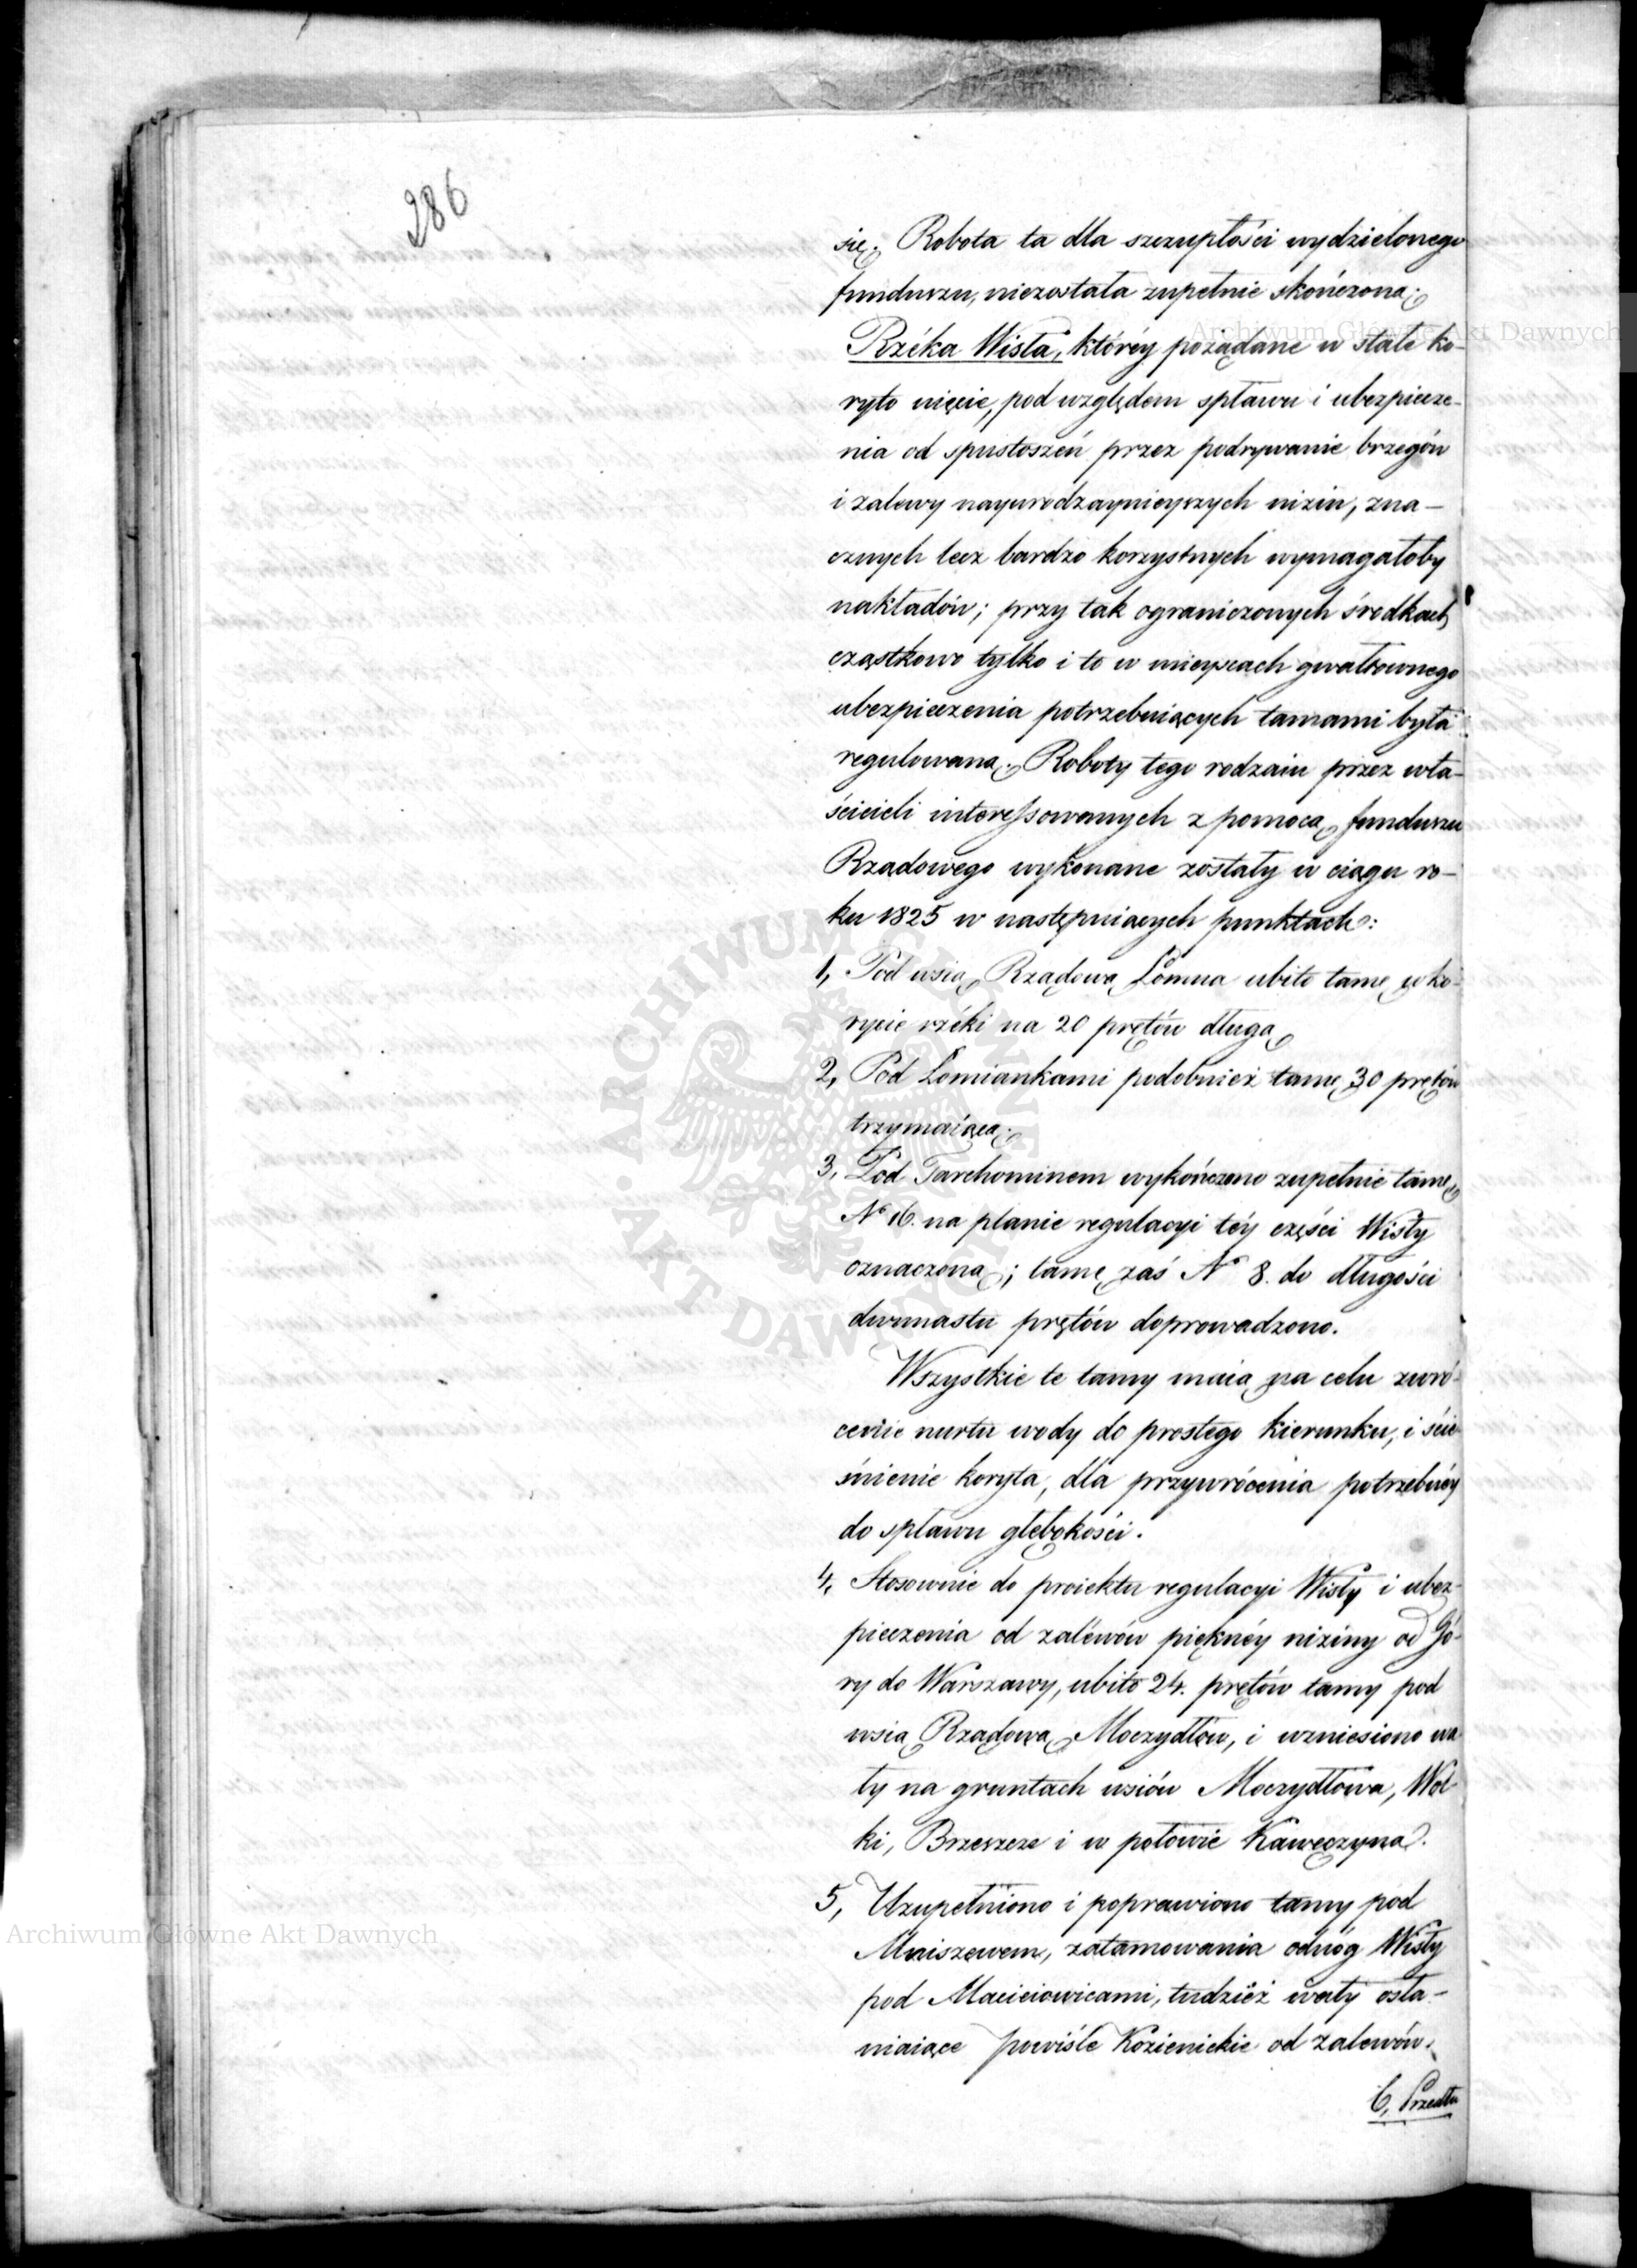 286
się. Robota ta dla szczupłości wydzielonego
funduszu, niezostała zupełnie skończona.
Rzéka Wisła, któréy pożądane w stałe ko-
ryto uięcie, pod względem spławu i ubezpiecze-
nia od spustoszeń przez podrywanie brzegów
i zalewy nayurodzaynieyszych nizin, zna-
cznych lecz bardzo korzystnych wymagałoby
nakładów; przy tak ograniczonych środkach
cząstkowo tylko i to w mieyscach gwałtownego
ubezpieczenia potrzebuiących tamami była
regulowana. Roboty tego rodzaiu przez wła-
ścicieli interessowanych z pomocą funduszu
Rządowego wykonane zostały w ciągu ro-
ku 1825 w następuiących punktach:
1, Pod wsią Rządową Łomna ubito tamę w ko-
rycie rzéki na 20 prętów długą
2, Pod Łomiankami podobnież tamę 30 prętów
trzymaiącą.
3, Pod Tarchominem wykończono zupełnie tamę
No 16. na planie regulacyi téy części Wisły
oznaczoną; tamę zaś No 8. do długości
dwunastu prętów doprowadzono.
Wszystkie te tamy maią na celu zwró-
cenie nurtu wody do prostego kierunku, i ście-
śnienie koryta, dla przywrócenia potrzebnéy
do spławu głębokości.
4, Stosownie do proiektu regulacyi Wisły i ubez-
pieczenia od zaléwów pięknéy niziny od Gó-
ry do Warszawy, ubito 24. prętów tamy pod
wsią Rządową Moczydłów, i wzniesiono wa-
ły na gruntach wsiów Moczydłowa, Wól-
ki, Brzeszcze i w połowie Kawęczyna.
5, Uzupełniono i poprawiono tamy pod
Mniszewem, zatamowania odnóg Wisły
pod Macieiowicami, tudzież wały osła-
niaiące powiśle Kozienickie od zalewów.
6, Przedłu
Archiwum Główne Akt Dawnych
Archiwum Główne Akt Dawnych
ARCHIWUM GŁÓWNE AKT DAWNYCH